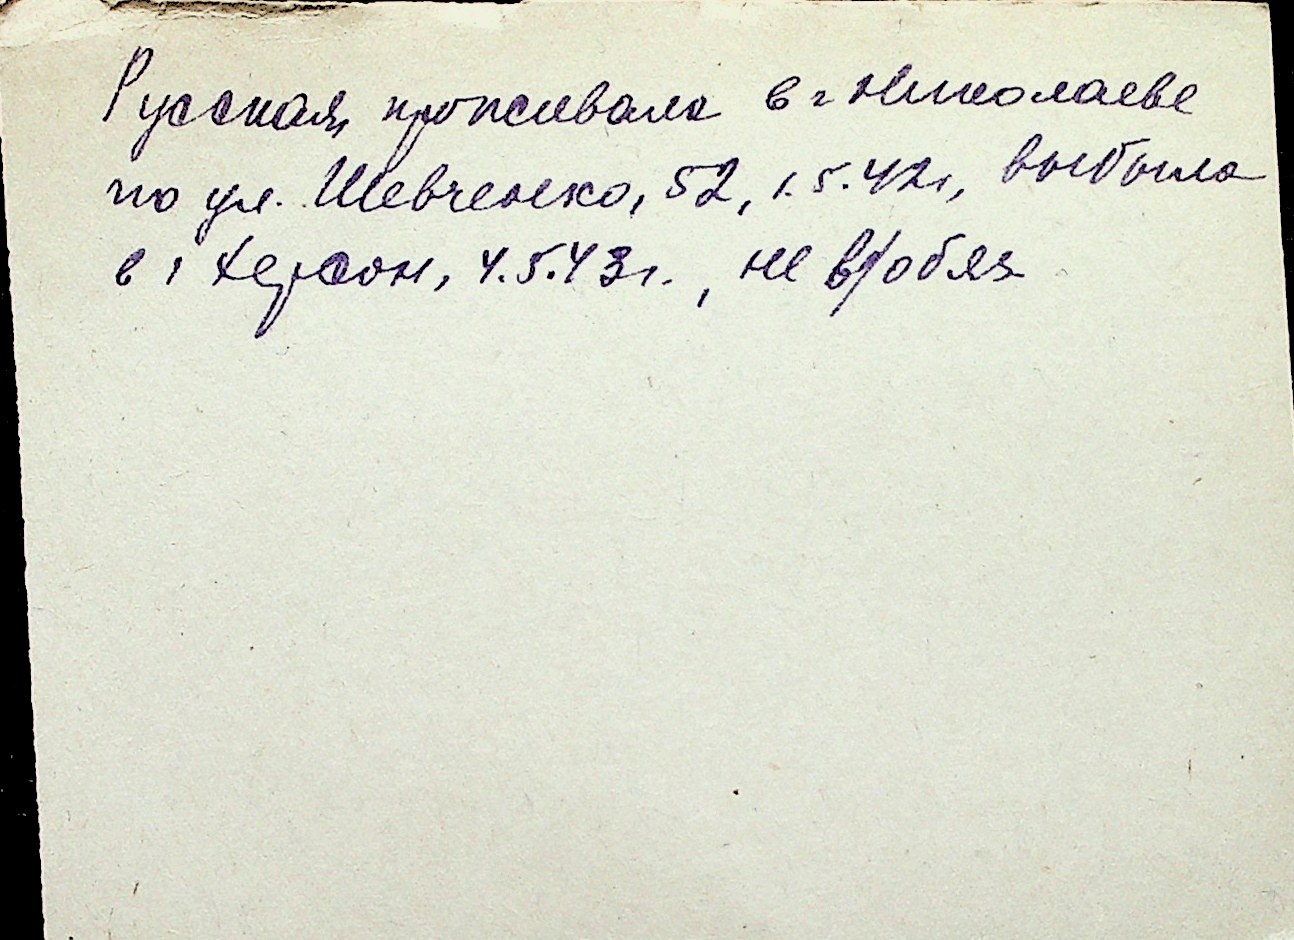 Русская, проживала в г Николаеве
по ул. Шевченко, 52, 1.5.42г, выбыла
в г Херсон, 4.5.43г., не